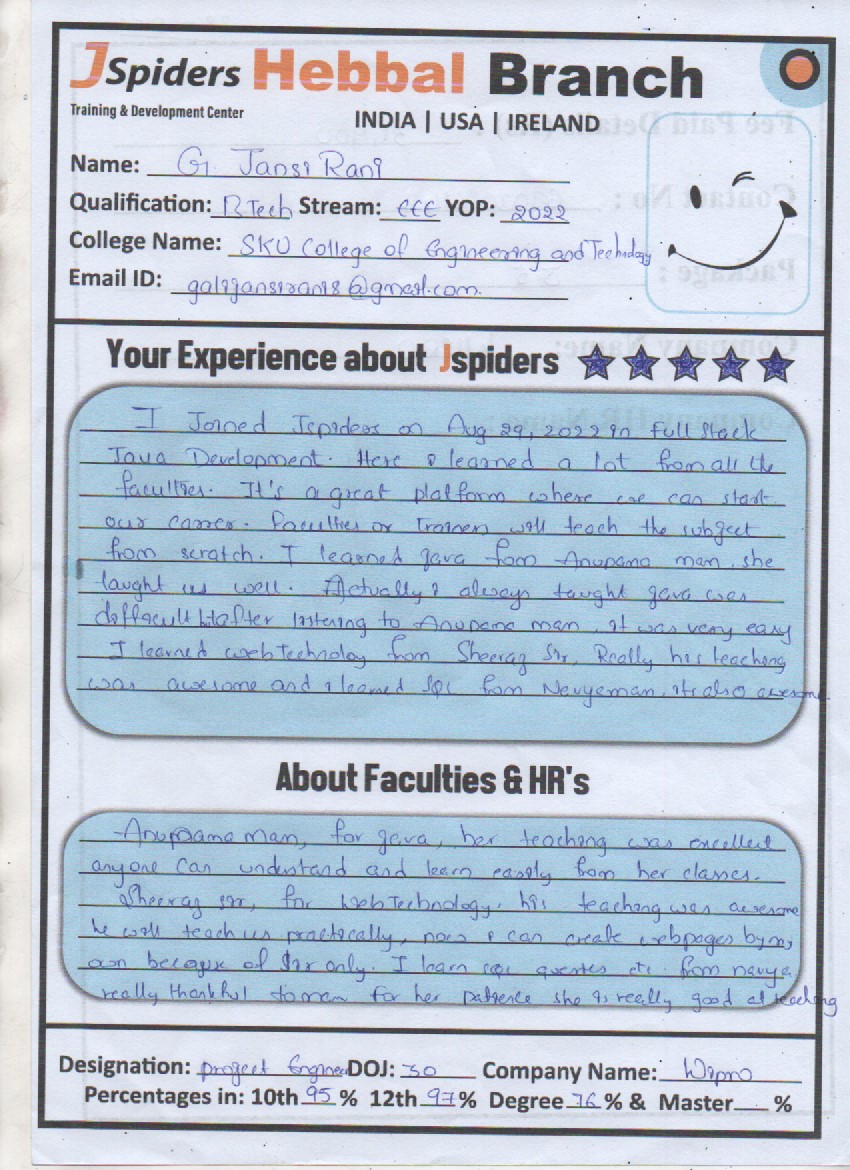 JSpiders Hebbal Branch
Training & Development Center
INDIA | USA | IRELAND
Name: G. Jansi Rani
Qualification: B.Tech Stream: EEE YOP: 2022
College Name: SKU College of Engineering and Technology
Email ID: galijansirani8@gmail.com.
Your Experience about Jspiders
I Joined Jspiders on Aug 29, 2022 in Full Stack
Java Development. Here I learned a lot from all the
faculties. It's a great platform where we can start
our career. Faculties or Trainers will teach the subject
from scratch. I learned java from Anupama mam, she
taught us well. Actually I always taught java was
difficult but after listening to Anupama mam, it was very easy
I learned web Technology from Sheeraz Sir, Really his teaching
was awesome and I learned SQL from Navya mam, its also awesome.
About Faculties & HR's
Anupama mam, for java, her teaching was excellent
anyone can understand and learn easily from her classes.
Sheeraz sir, for Web Technology, his teaching was awesome
he will teach us practically, now I can create webpages by my
own because of Sir only. I learn SQL queries etc. from navya
really thankful to mam for her patience she is really good at teaching
Designation: project Engineer DOJ: 30 Company Name: Wipro
Percentages in: 10th 95 % 12th 97 % Degree 76 % & Master %